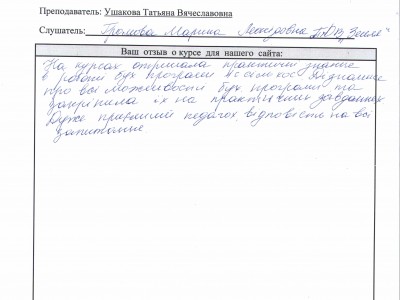 Преподаватель: Ушакова Татьяна Вячеславовна
Слушатель: Громова Марина
Ваш отзыв о курсе для нашего сайта:
На курсах отримала практичні знання
в роботі бух програми
про всі можливості бух програми та
закріпила їх на практичних завданнях
Дуже приємний педагог, відповість на всі
запитання